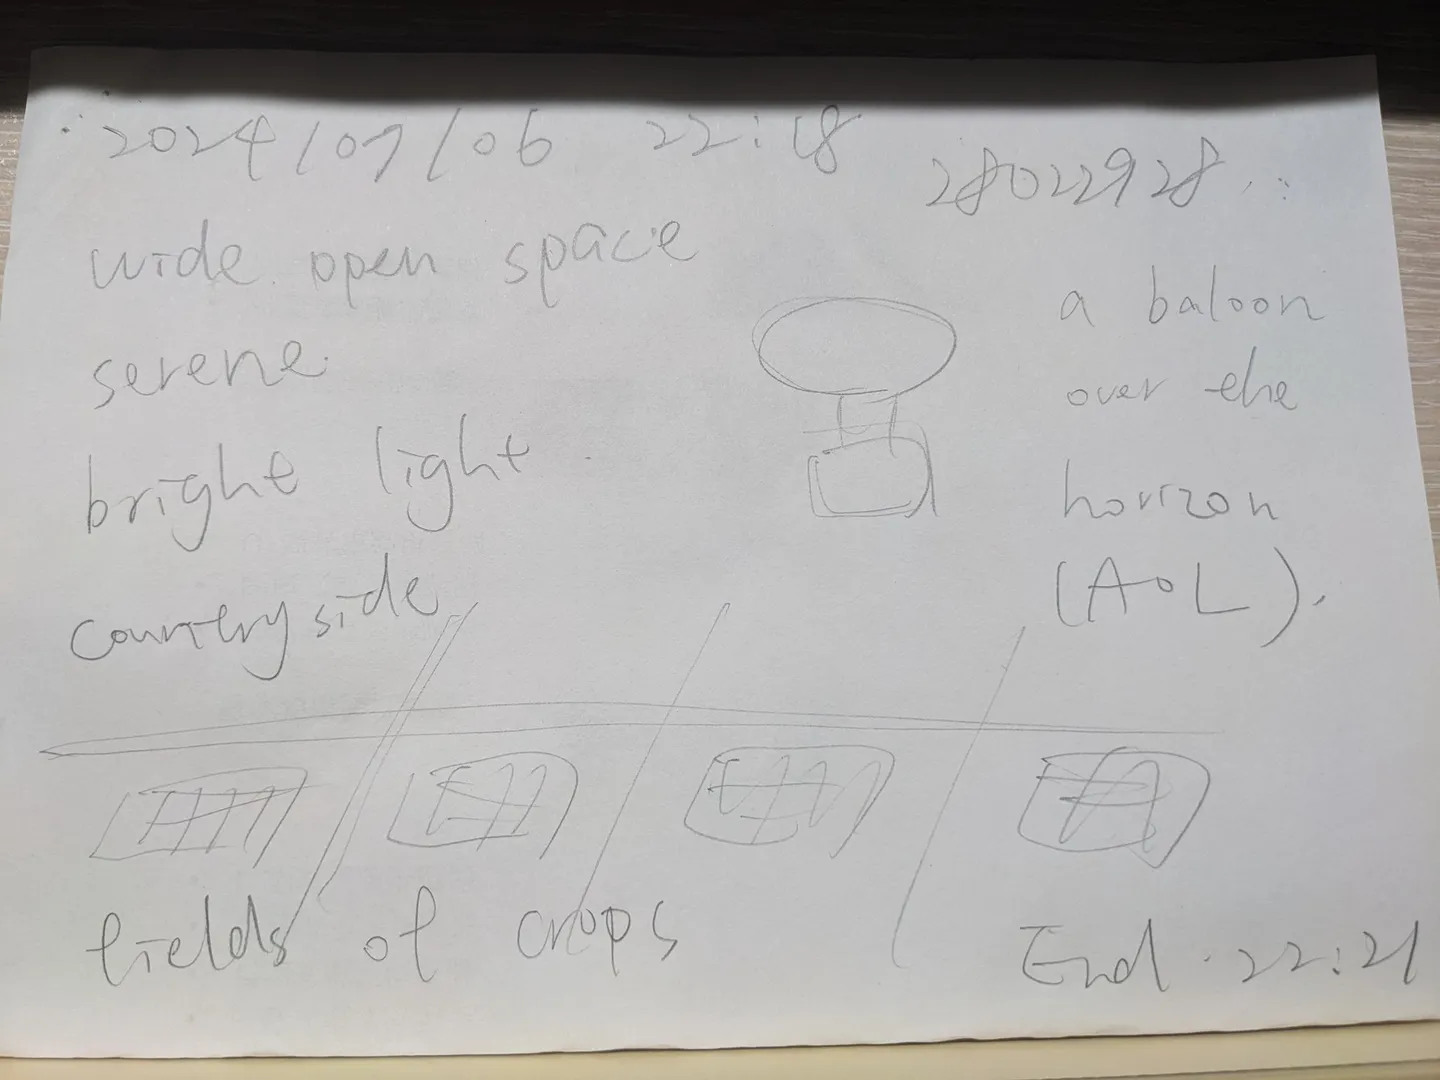 2024/07/06 22:18
28022928
wide open space
serene
bright light
countryside
a baloon
over the
horizon
(AOL).
fields of crops
End. 22:21